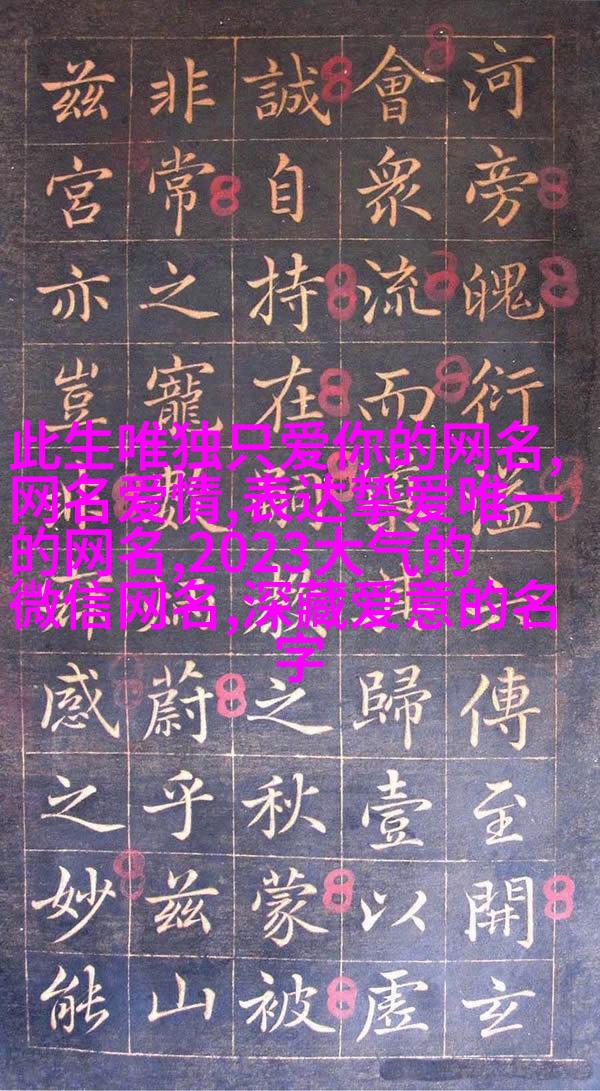 河旁魄衍溢傳至開玄
會衆流而歸壹以虛
誠自持在之秋蒙被
非常之寵敢蔚乎茲山
茲宮亦豈感之妙能
此生唯独只爱你的网名,
网名爱情,表达挚爱唯一
的网名,2023大气的
微信网名,深藏爱意的名
字